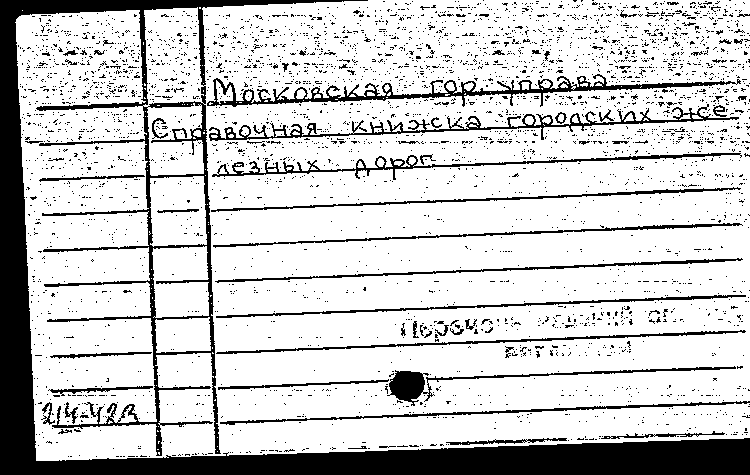 Московская гор. управа
Справочная книжка городских же
лезных дорог
Перечень изданий